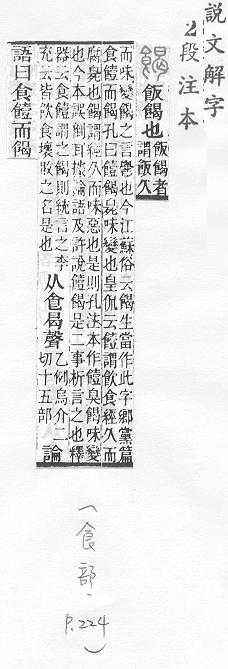 說文解字
2段注本
餲 飯餲也 飯餲者
謂飯久
而味變餲之言鬱也今江蘇俗云餲生當作此字鄉黨篇
食饐而餲孔曰饐餲臭味變也皇侃云饐謂飲食經久而
腐臭也餲謂經久而味惡也是則孔注本作饐臭餲味變
也今本誤倒耳據論語及許說饐餲是二事析言之也釋
器云食饐謂之餲則統言之李
充云皆飲食壞敗之名是也
从食曷聲 乙例烏介二
切十五部 論
語曰食饐而餲
(食部, P.224)